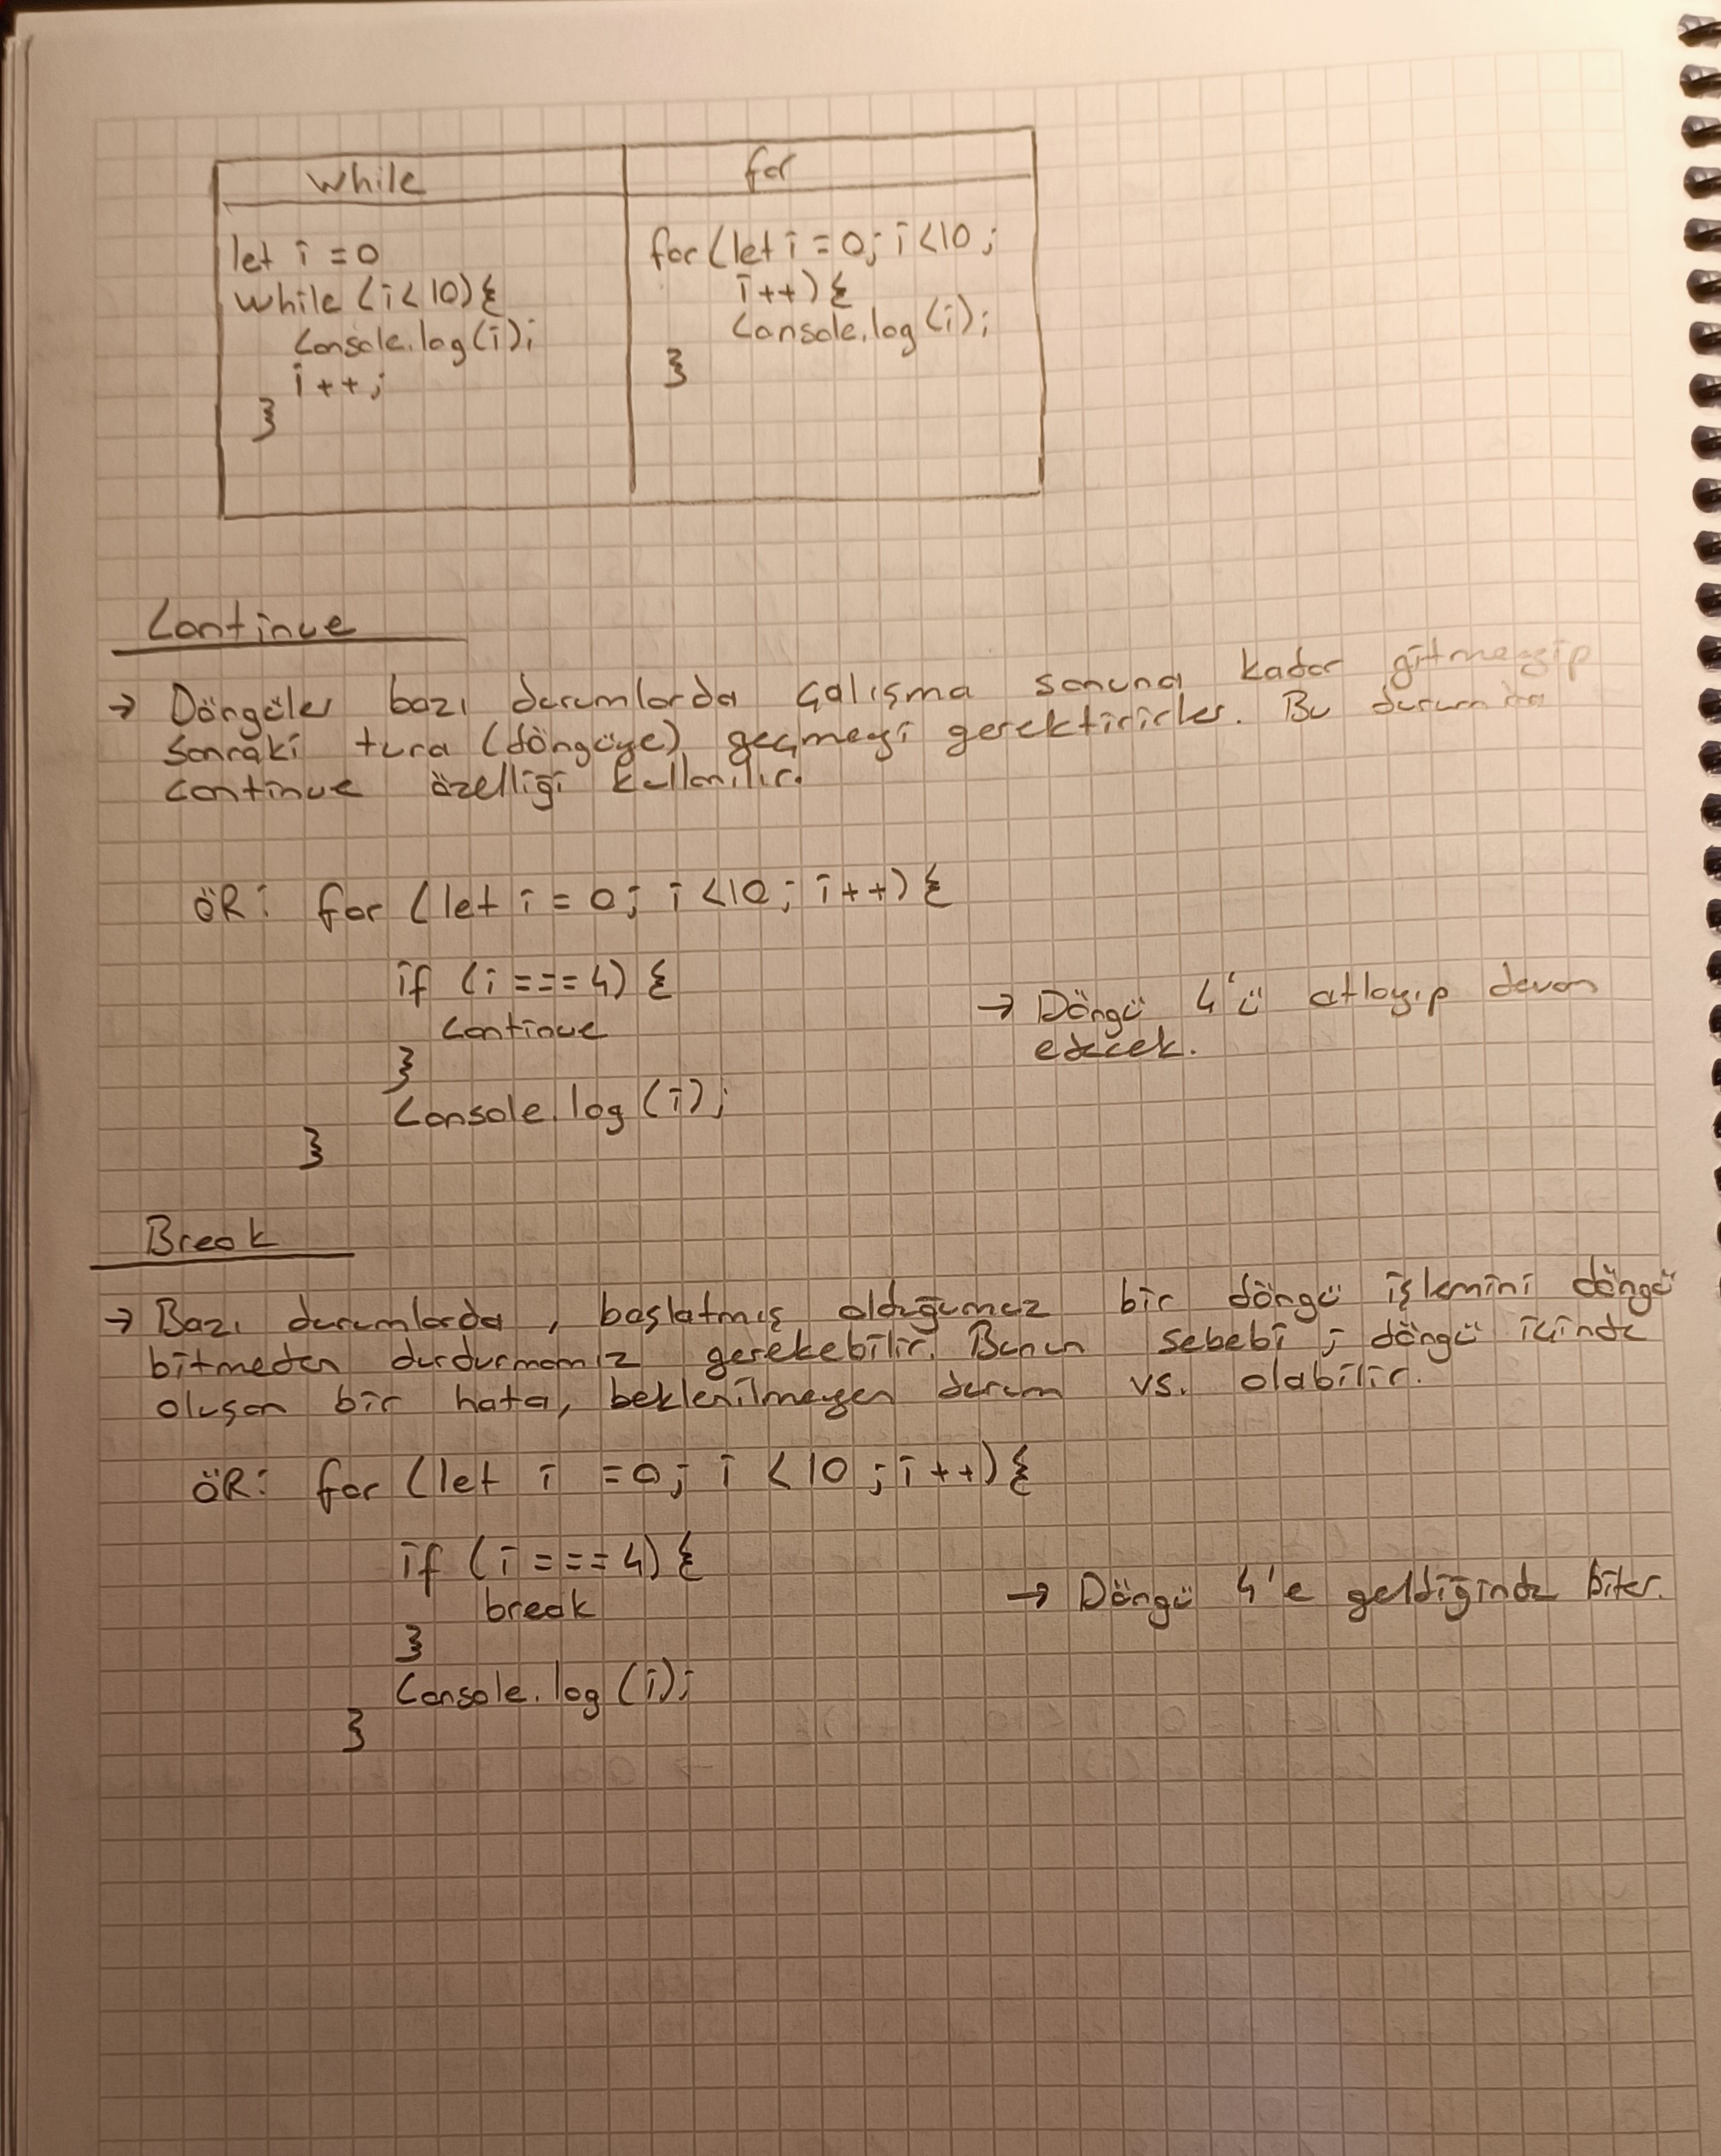 while
for
let i = 0
while (i < 10) {
console.log(i);
i++;
}
for (let i = 0; i < 10;
i++) {
console.log(i);
}
Continue
→ Döngüler bazı durumlarda çalışma sonuna kadar gitmeyip
sonraki tura (döngüye) geçmeyi gerektirirler. Bu durumda
continue özelliği kullanılır.
ÖR: for (let i = 0; i < 10; i++) {
if (i === 4) {
continue
→ Döngü 4'ü atlayıp devam
edecek.
}
console.log(i);
}
Break
→ Bazı durumlarda, başlatmış olduğumuz bir döngü işlemini döngü
bitmeden durdurmamız gerekebilir. Bunun sebebi; döngü içinde
oluşan bir hata, beklenilmeyen durum vs. olabilir.
ÖR: for (let i = 0; i < 10; i++) {
if (i === 4) {
break
→ Döngü 4'e geldiğinde biter.
}
Console.log(i);
}